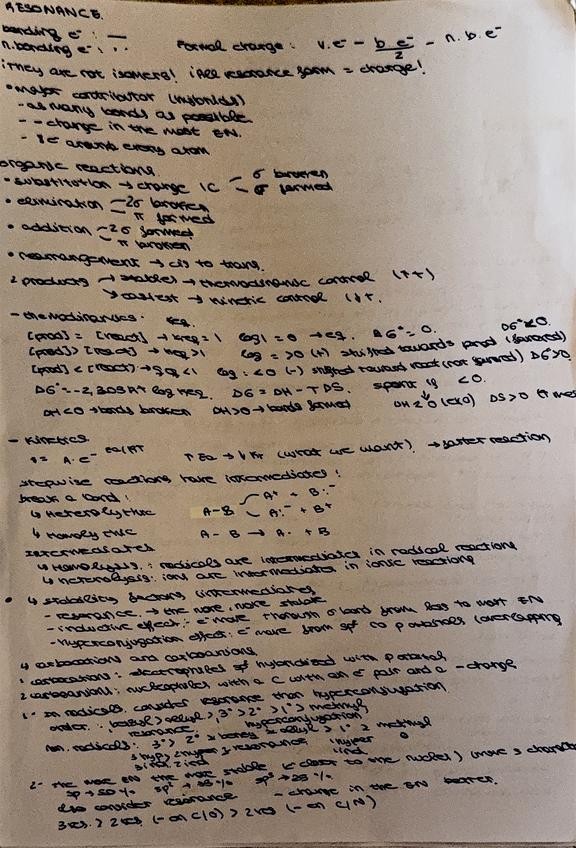 RESONANCE.
bonding e⁻: —
n. bonding e⁻: ..
Formal charge: v.e⁻ - b.e⁻/2 - n.b.e⁻
¡They are not isomers! ¡All resonance form = charge!
• Major contributor (hybrids)
- as many bonds as possible
- - charge in the most EN.
- 8e around every atom
organic reactions.
• substitution → change 1C - σ broken
- σ formed
• elimination - 2σ broken
- π formed
• addition - 2σ formed
- π broken
• rearrangement → cis to trans.
2 products → stablest → thermodinamic control (↑t)
→ easiest → kinetic control (↓t.
- thermodinamics: Keq.
[prod] = [react] → Keq = 1 log 1 = 0 → eq. ΔG° = 0.
[prod] > [react] → Keq > 1 log = > 0 (+) shifted towards prod (favored) ΔG° < 0.
[prod] < [react] → Keq < 1 log: < 0 (-) shifted toward react (not favored) ΔG° > 0.
ΔG° = -2,303 RT log Keq. ΔG = ΔH - TΔS. spont if < 0.
ΔH < 0 → bonds broken ΔH > 0 → bonds formed ΔH < 0 (exo) ΔS > 0
- Kinetics
= A·e^-Ea/RT ↑ Ea → ↓ (what we want) → faster reaction
stepwise reactions have intermediates!
break a bond:
↳ Heterolythic A-B A⁺ + B:⁻
A:⁻ + B⁺
↳ Homolythic A - B → A· + B
Intermediates
↳ Homolysis: radicals are intermediates in radical reactions
↳ heterolysis: ions are intermediates in ionic reactions
• ↳ stability factors (intermediates)
- resonance → the more, more stable
- inductive effect: e⁻ move through σ bond from less to most EN
- hyperconjugation effect: e⁻ move from sp³ to p orbitals (overlapping
↳ carbocations and carboanions.
1 carbocations: electrophiles sp² hybridized with p orbital
2 carboanions: nucleophiles with a C with an e⁻ pair and a - charge
1- In radicals, consider resonance than hyperconjugation.
order: benzyl > allyl > 3° > 2° > 1° > methyl
resonance. hyperconjugation
non. radicals: 3° > 2° ≥ benzyl ≈ allyl > 1° > methyl
3 hyp 2 hyper resonance hyper 0
3 ind 2 ind ind
2- the more EN the more stable (e⁻ closer to the nuclei) (more s character
sp → 50% sp² → 33% sp³ → 25%
also consider resonance - charge in the EN
3 res. > 2 res (- on C/O) > 2 res (- on C/N)